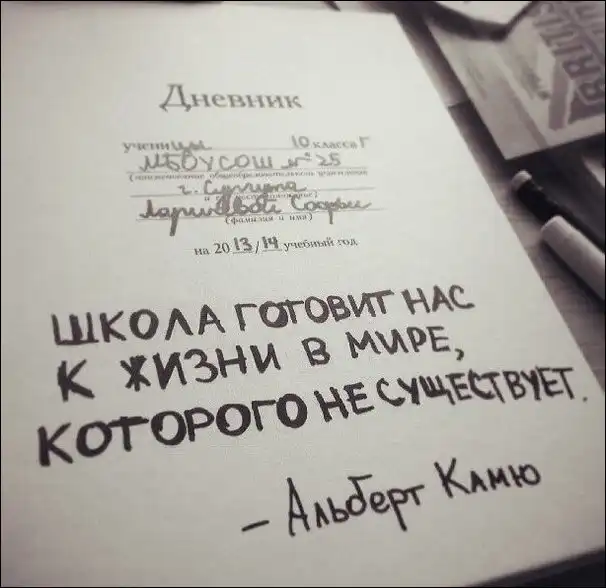 BRITIS
Дневник
ученицы 10 класса Г
МБОУСОШ №25
(наименование общеобразовательного учреждения
г. Сургута
(фамилия и имя)
на 2013/14 учебный год
ШКОЛА ГОТОВИТ НАС
К ЖИЗНИ В МИРЕ,
КОТОРОГО НЕ СУЩЕСТВУЕТ.
– Альберт Камю